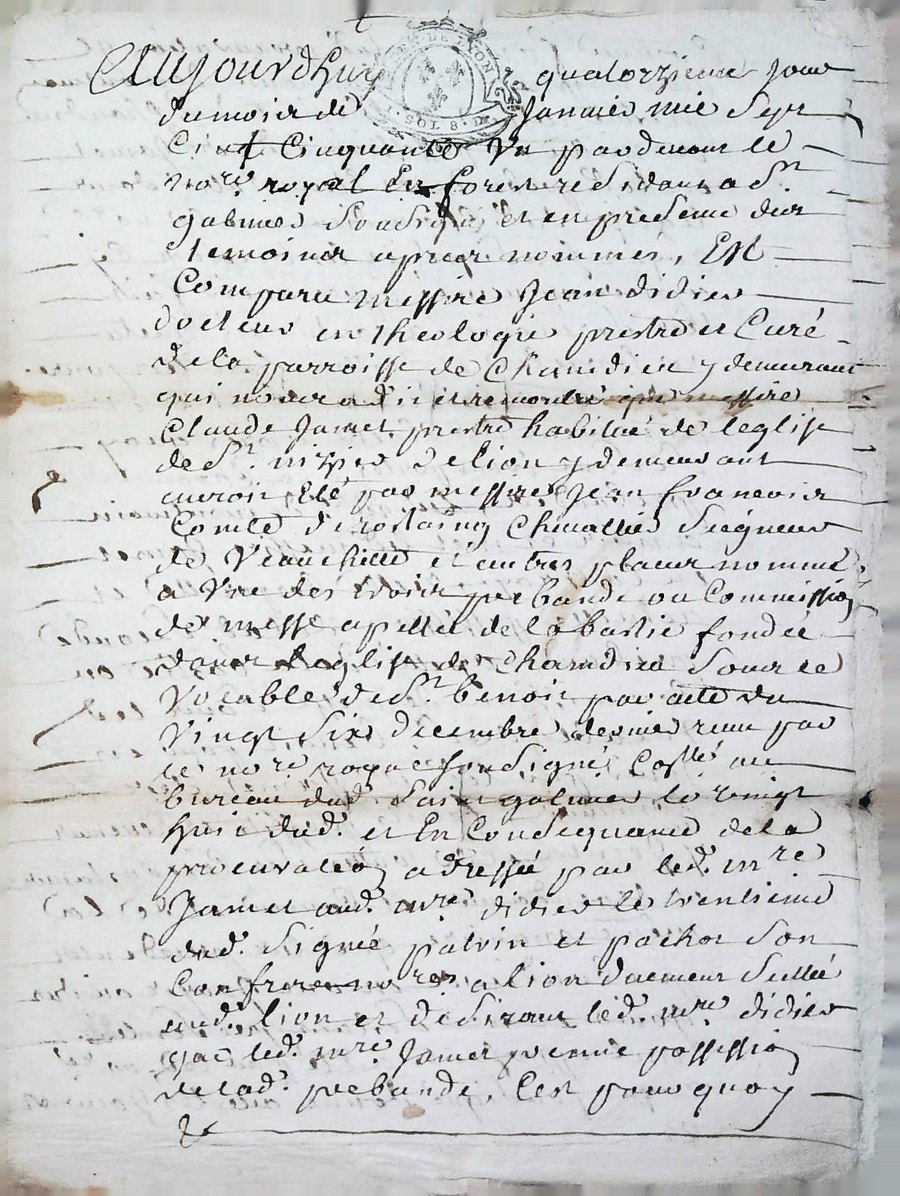 Aujourdhuy quatorzieme jour
GEN DE LYON
1 SOL 8 D
du mois de Janvier mil sept
Cent Cinquante Un pardevant le
No.re royal En forest residant a S.t
galmier soussigné et en presence des
temoins apres nommés, Est
Comparu messire Jean didier
docteur en theologie prestre et Curé
de la parroisse de Chandieu y demeurant
qui nous a dit et remontré que messire
Claude Jamet prestre habitué de leglise
de S.t nizier de lion y demeurant
auroit eté par messire Jean francois
Comte de rostaing Chevallier Seigneur
de Veauchette et autres places nommé
a Une des trois prebande ou Commission
de messe apellée de la bastie fondée
dans leglise de Chandieu Sous le
Vocable de S.t benoit par acte du
Vingt Six decembre dernier recu par
le no.re royal Soussigné, Collé au
bureau dud. Saint galmier le vingt
huit dud. et En Consequance de la
procuration adressée par led. m.re
Jamet aud. m.re didier le trentieme
dud. Signée patrin et pachot Son
Confrere no.res a lion duement Scellée
aud. lion et desirant led. m.re didier
que led. m.re Jamet prenne possession
de lad. prebande, Cest pourquoy